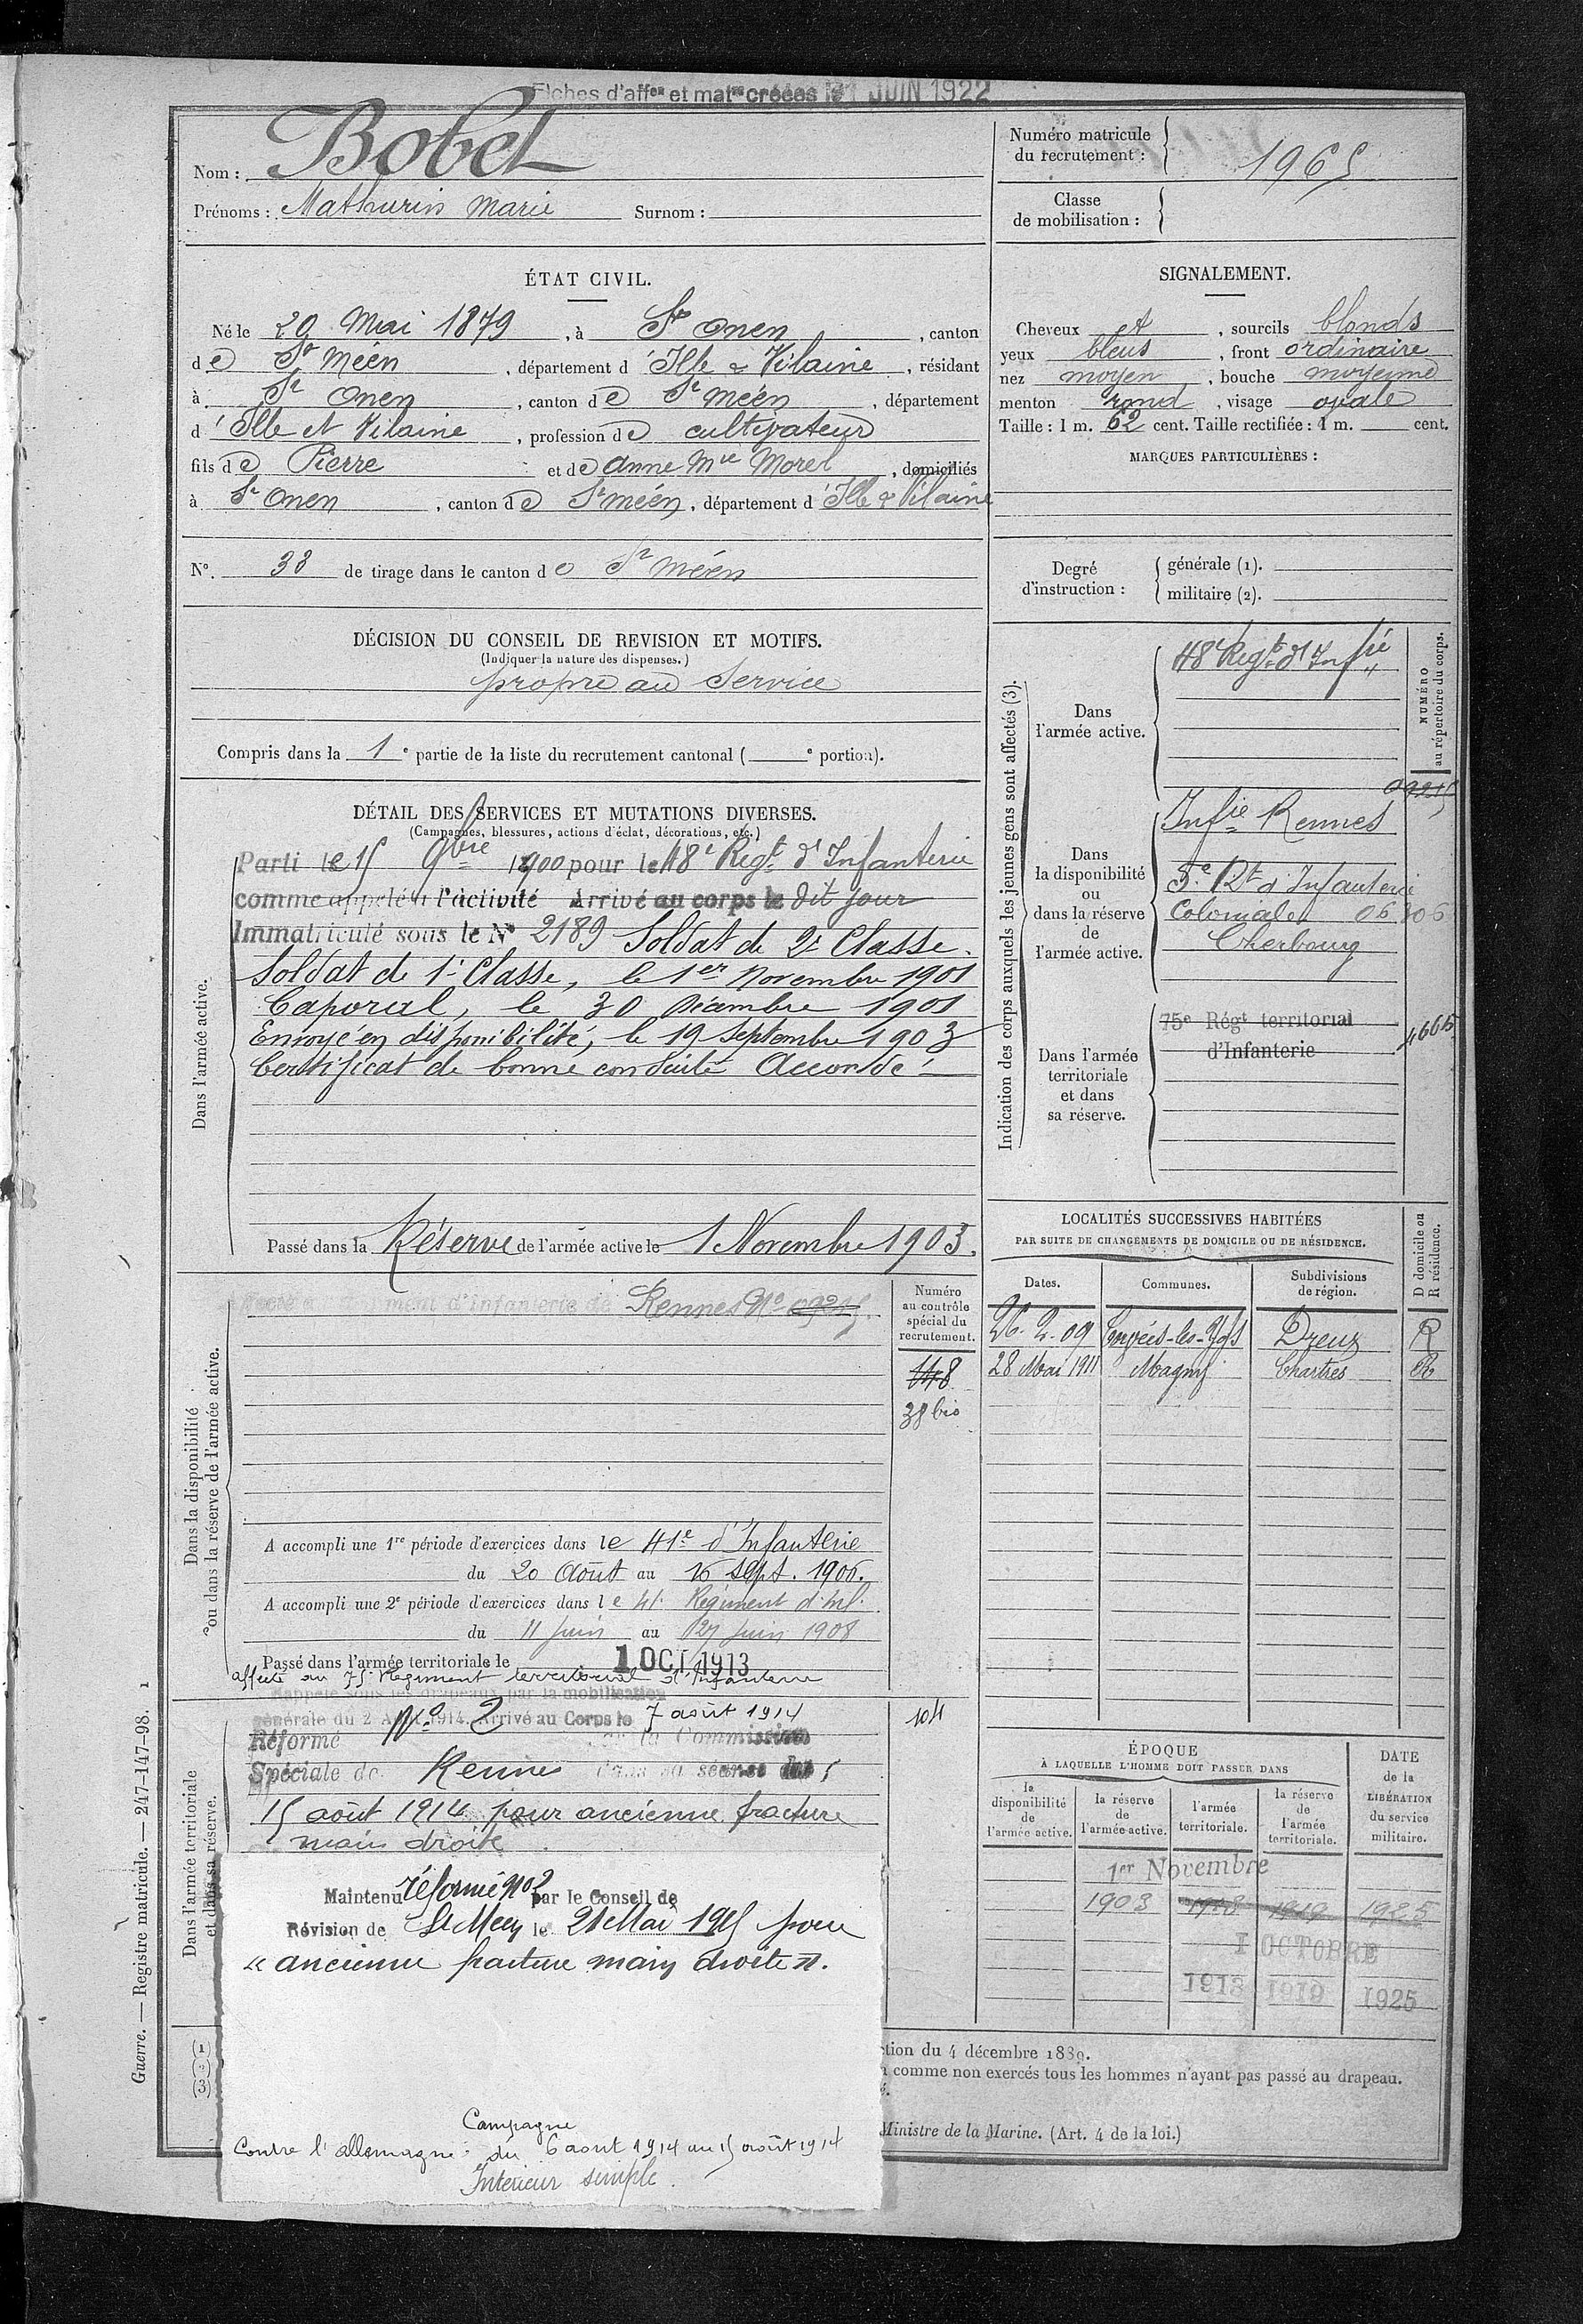 Fiches d'affon et matre créées le 1 JUIN 1922
Nom : Bobet
Prénoms : Mathurin Marie Surnom :
Numéro matricule du recrutement : 1965
Classe de mobilisation :
ÉTAT CIVIL.
Né le 29 Mai 1879, à St Onen, canton
de St Méen, département d'Ille & Vilaine, résidant
à St Onen, canton de St Méen, département
d'Ille et Vilaine, profession de cultivateur
fils de Pierre et de Anne Mie Morel, domiciliés
à St Onen, canton de St Méen, département d'Ille & Vilaine
N°. 38 de tirage dans le canton de St Méen
SIGNALEMENT.
Cheveux et, sourcils blonds
yeux bleus, front ordinaire
nez moyen, bouche moyenne
menton rond, visage ovale
Taille : 1 m. 62 cent. Taille rectifiée : 1 m. cent.
MARQUES PARTICULIÈRES :
Degré d'instruction :
générale (1).
militaire (2).
DÉCISION DU CONSEIL DE REVISION ET MOTIFS.
(Indiquer la nature des dispenses.)
propre au Service
Compris dans la 1e partie de la liste du recrutement cantonal ( e portion).
DÉTAIL DES SERVICES ET MUTATIONS DIVERSES.
(Campagnes, blessures, actions d'éclat, décorations, etc.)
Dans l'armée active.
Parti le 15 9bre 1900 pour le 48e Régt d'Infanterie
comme appelé à l'activité Arrivé au corps le dit jour
Immatriculé sous le N° 2189 Soldat de 2e Classe.
Soldat de 1e Classe, le 1er Novembre 1901
Caporal, le 30 Décembre 1901
Envoyé en disponibilité, le 19 Septembre 1903
Certificat de bonne conduite Accordé
Passé dans la Réserve de l'armée active le 1 Novembre 1903.
Indication des corps auxquels les jeunes gens sont affectés (3).
NUMÉRO au répertoire du corps.
Dans l'armée active.
48e Régt d'Infie
Dans la disponibilité ou dans la réserve de l'armée active.
09215
Infie Rennes
5e Rt d'Infanterie
Coloniale 06306
Cherbourg
Dans l'armée territoriale et dans sa réserve.
75e Régt territorial
d'Infanterie
LOCALITÉS SUCCESSIVES HABITÉES
PAR SUITE DE CHANGEMENTS DE DOMICILE OU DE RÉSIDENCE.
D domicile ou R résidence.
Dates. Communes. Subdivisions de région.
26.2.09 Dreux R
28 Mai 1911 Magny Chartres R
Dans la disponibilité ou dans la réserve de l'armée active.
Numéro au contrôle spécial du recrutement.
régiment d'infanterie de Rennes No 09215
148
38 bis
A accompli une 1re période d'exercices dans le 41e d'Infanterie
du 20 Août au 16 sept. 1906.
A accompli une 2e période d'exercices dans le 41e Régiment d'inf.
du 11 juin au 27 juin 1908
Passé dans l'armée territoriale le 1 OCT 1913
affecté au 75e Régiment territorial d'Infanterie
Rappelé sous les drapeaux par la mobilisation
générale du 2 Août 1914. Arrivé au Corps le 7 août 1914
104
Dans l'armée territoriale et dans sa réserve.
Réformé No 2 par la Commission
Spéciale de Rennes dans sa séance du
15 août 1914 pour ancienne fracture
main droite
Maintenu réformé No 2 par le Conseil de
Révision de St Meen le 21 Mai 1915 pour
« ancienne fracture main droite ».
Campagne
Contre l'allemagne : du 6 aout 1914 au 15 août 1914
Intérieur simple.
ÉPOQUE
À LAQUELLE L'HOMME DOIT PASSER DANS
la disponibilité de l'armée active.
la réserve de l'armée active.
l'armée territoriale.
la réserve de l'armée territoriale.
DATE de la LIBÉRATION du service militaire.
1er Novembre
1903 1913 1919 1925
1 OCTOBRE
1913 1919 1925
(1)
(2)
(3)
ction du 4 décembre 1889.
comme non exercés tous les hommes n'ayant pas passé au drapeau.
Ministre de la Marine. (Art. 4 de la loi.)
Guerre. — Registre matricule. — 247-147-98. 1